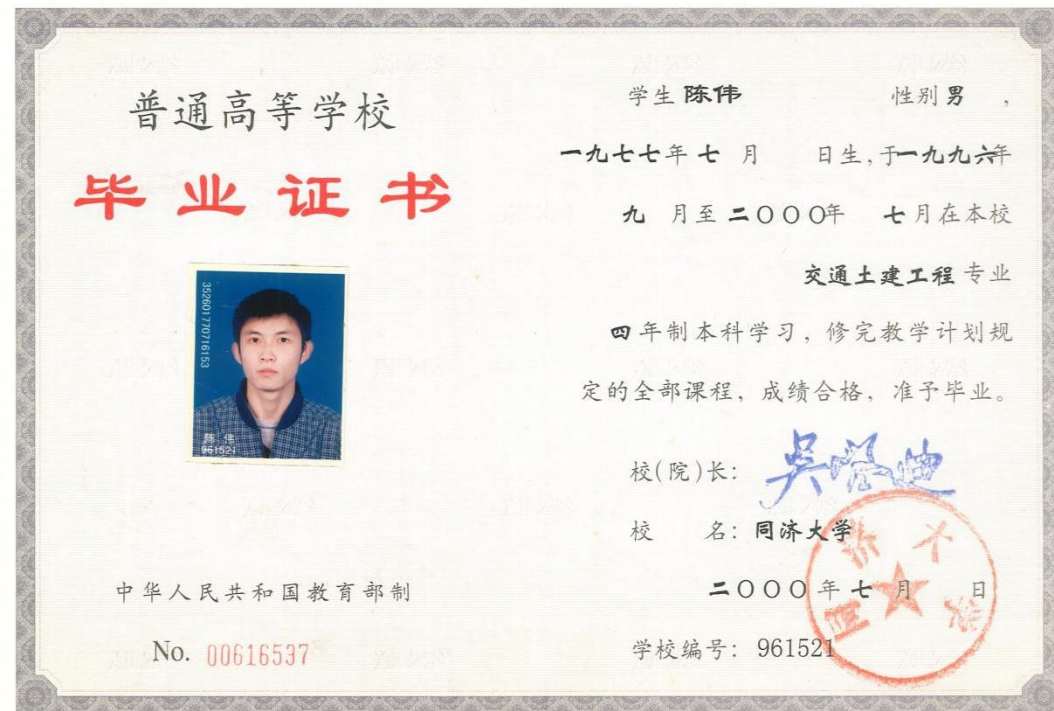 普通高等学校
毕业证书
352601770716153
陈伟
961521
中华人民共和国教育部制
No. 00616537
学生陈伟 性别男，
一九七七年七月 日生，于一九九六年
九月至二〇〇〇年 七月在本校
交通土建工程专业
四年制本科学习，修完教学计划规
定的全部课程，成绩合格，准予毕业。
校(院)长：吴启迪
校 名：同济大学
二〇〇〇年七月 日
学校编号：961521
同济大学